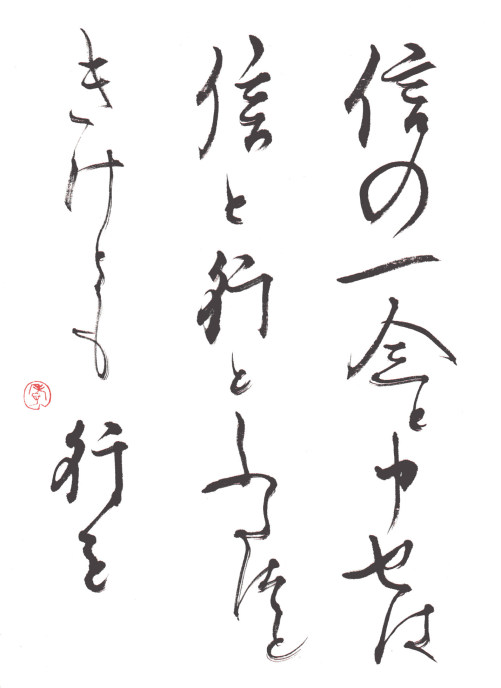 信の一念と申せは
信と行とふたつと
きけとも 行を